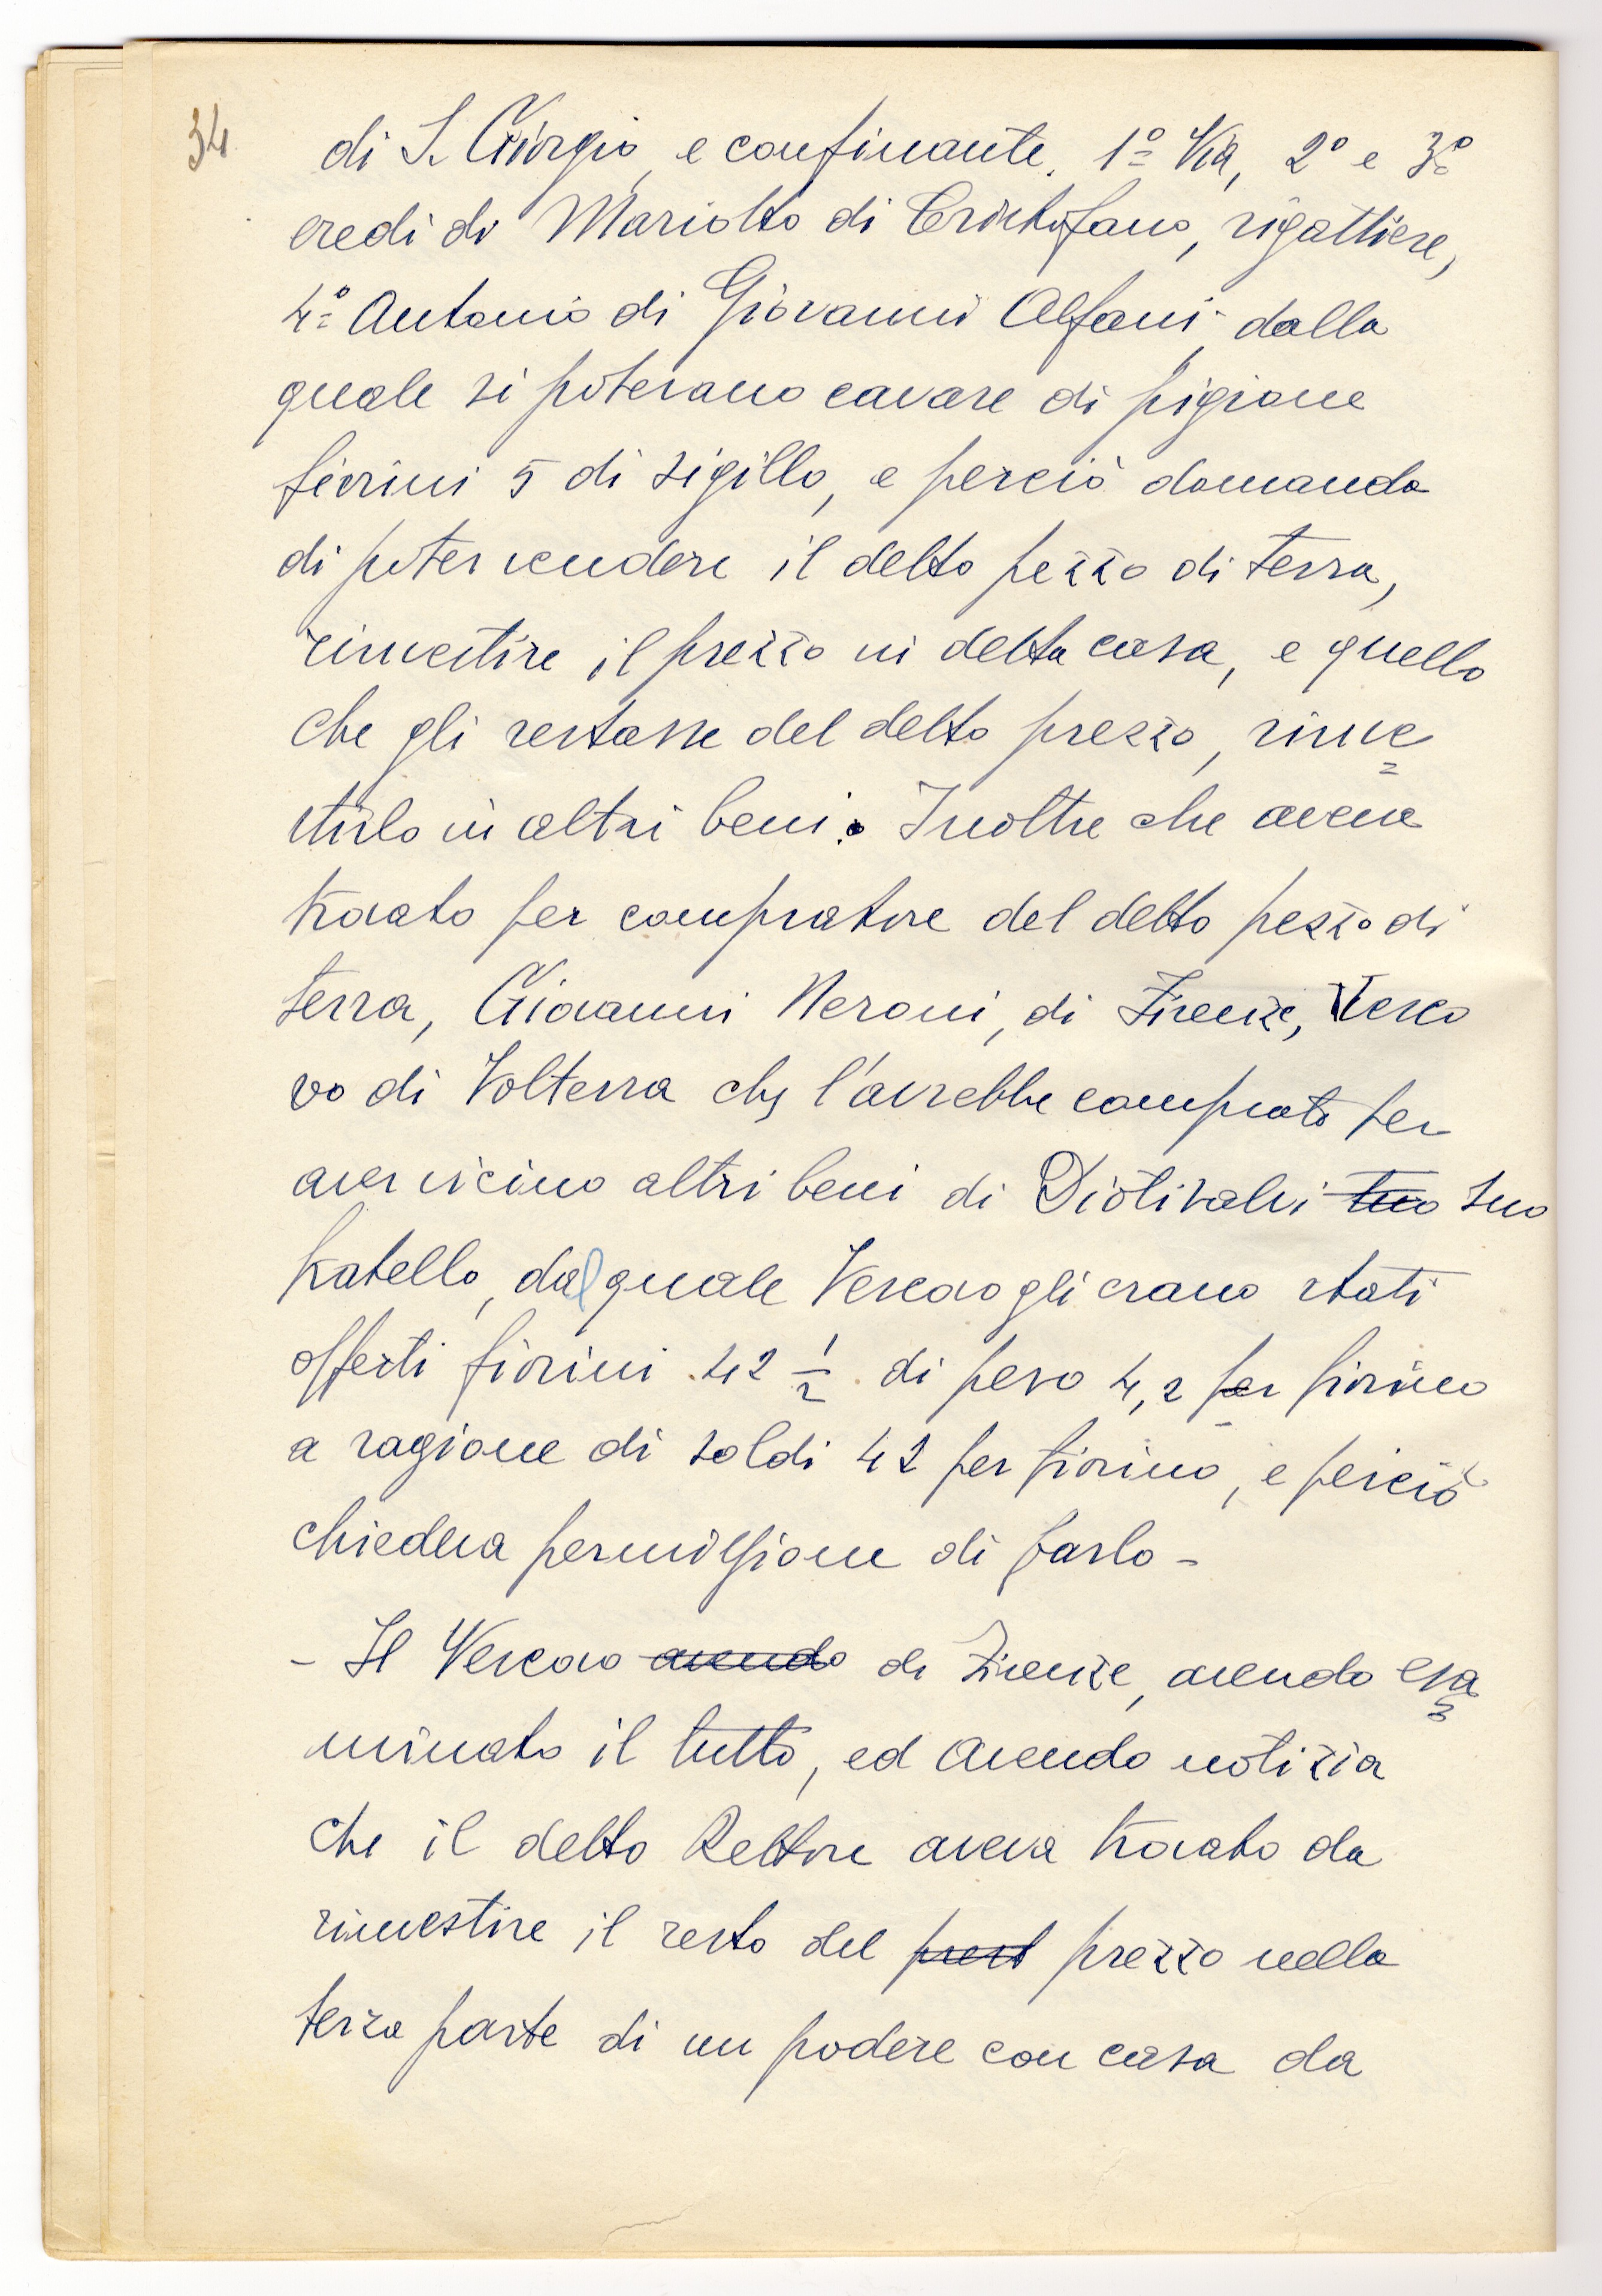 34
di S. Giorgio, e confinante. 1º Via, 2º e 3º
eredi di Mariotto di Cristofano, rigattiere,
4º Antonio di Giovanni Alfani, dalla
quale si potevano cavare di pigione
fiorini 5 di sigillo, e perciò domanda
di poter vendere il detto pezzo di terra,
rinvestire il prezzo in detta casa, e quello
che gli restasse del detto prezzo, rinve=
stirlo in altri beni. Inoltre che aveva
trovato per compratore del detto pezzo di
terra, Giovanni Neroni, di Firenze, Vesco
vo di Volterra che l'avrebbe comprato per
aver vicino altri beni di Diotisalvi tuo suo
fratello, dal quale Vescovo gli erano stati
offerti fiorini 42 1/2 di peso 4,2 per fiorino
a ragione di soldi 42 per fiorino, e perciò
chiedeva permissione di farlo -
- Il Vescovo avendo di Firenze, avendo esa=
minato il tutto, ed avendo notizia
che il detto Rettore aveva trovato da
rinvestire il resto del prezzo nella
terza parte di un podere con casa da